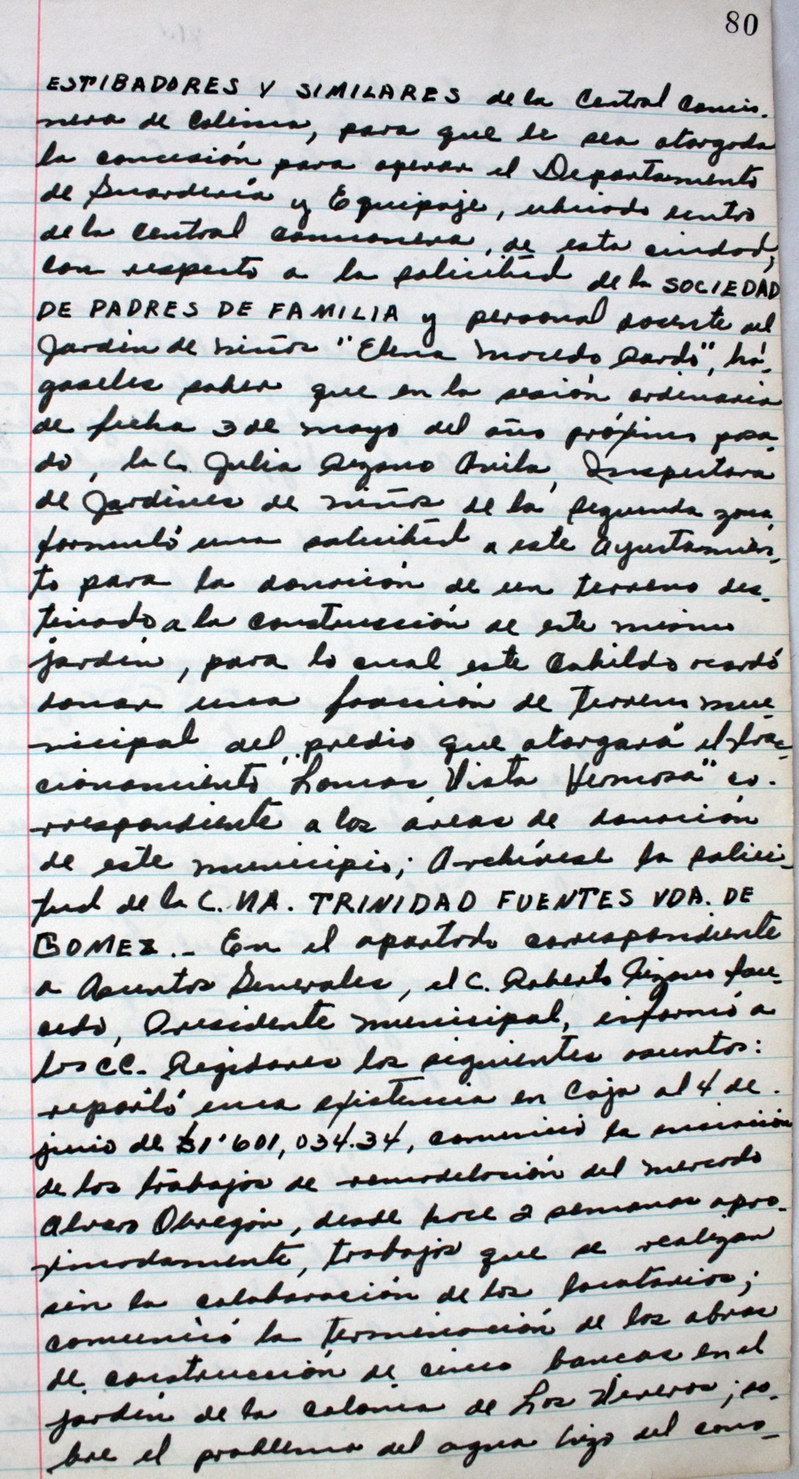 80
ESTIBADORES Y SIMILARES de la Central Camio-
nera de Colima, para que le sea otorgada
la concesión para operar el Departamento
de Guardería y Equipaje, ubicado dentro
de la Central camionera, de esta ciudad;
con respecto a la solicitud de la SOCIEDAD
DE PADRES DE FAMILIA y personal docente del
Jardín de niños "Elena Macedo Pardo", há-
gaseles saber que en la sesión ordinaria
de fecha 3 de mayo del año próximo pasa-
do, la C. Julia Lezano Avila, Inspectora
de Jardines de niños de la segunda zona
formuló una solicitud a este Ayuntamien-
to para la donación de un terreno des-
tinado a la construcción de este mismo
jardín, para lo cual este Cabildo acordó
donar una fracción de terreno mu-
nicipal del predio que otorgará el frac-
cionamiento "Lomas Vista Hermosa" co-
rrespondiente a las áreas de donación
de este municipio; Archívese la solici-
tud de la C. MA. TRINIDAD FUENTES VDA. DE
GOMEZ.- En el apartado correspondiente
a Asuntos Generales, el C. Roberto Sal-
cedo, Presidente Municipal, informó a
los CC. Regidores los siguientes asuntos:
reportó una existencia en Caja al 4 de
junio de $1'601,034.34, comunicó la iniciación
de los trabajos de remodelación del mercado
Alvaro Obregón, desde hace 2 semanas apro-
ximadamente, trabajos que se realizan
sin la colaboración de los locatarios;
comunicó la terminación de los obras
de construcción de cinco bancas en el
jardín de la colonia de Los Viveros; so-
bre el problema del agua hizo del cono-